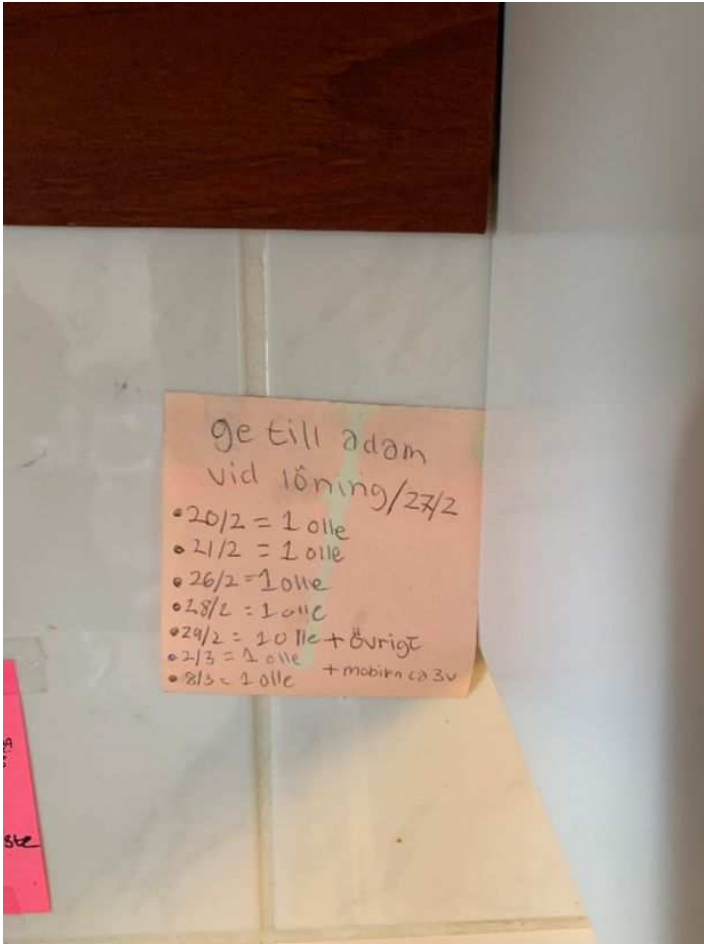 ge till adam
vid löning/27/2
• 20/2 = 1 olle
• 21/2 = 1 olle
• 26/2 = 1 olle
• 28/2 = 1 olle
• 29/2 = 1 olle + övrigt
• 2/3 = 1 olle + mobirn ca 3v
• 8/3 = 1 olle